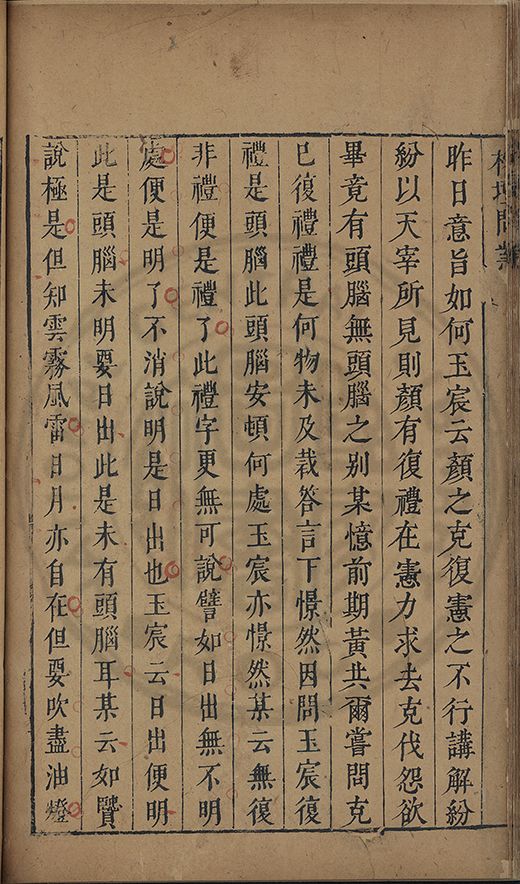 問
昨日意旨如何玉宸云顏之克復憲之不行講解紛
紛以天宰所見則顏有復禮在憲力求去克伐怨欲
畢竟有頭腦無頭腦之別某憶前期黃共爾嘗問克
巳復禮禮是何物未及裁答言下憬然因問玉宸復
禮是頭腦此頭腦安頓何處玉宸亦憬然某云無復
非禮便是禮了此禮字更無可說譬如日出無不明
處便是明了不消說明是日出也玉宸云日出便明
此是頭腦未明要日出此是未有頭腦耳某云如賢
說極是但知雲霧風雷日月亦自在但要吹盡油燈